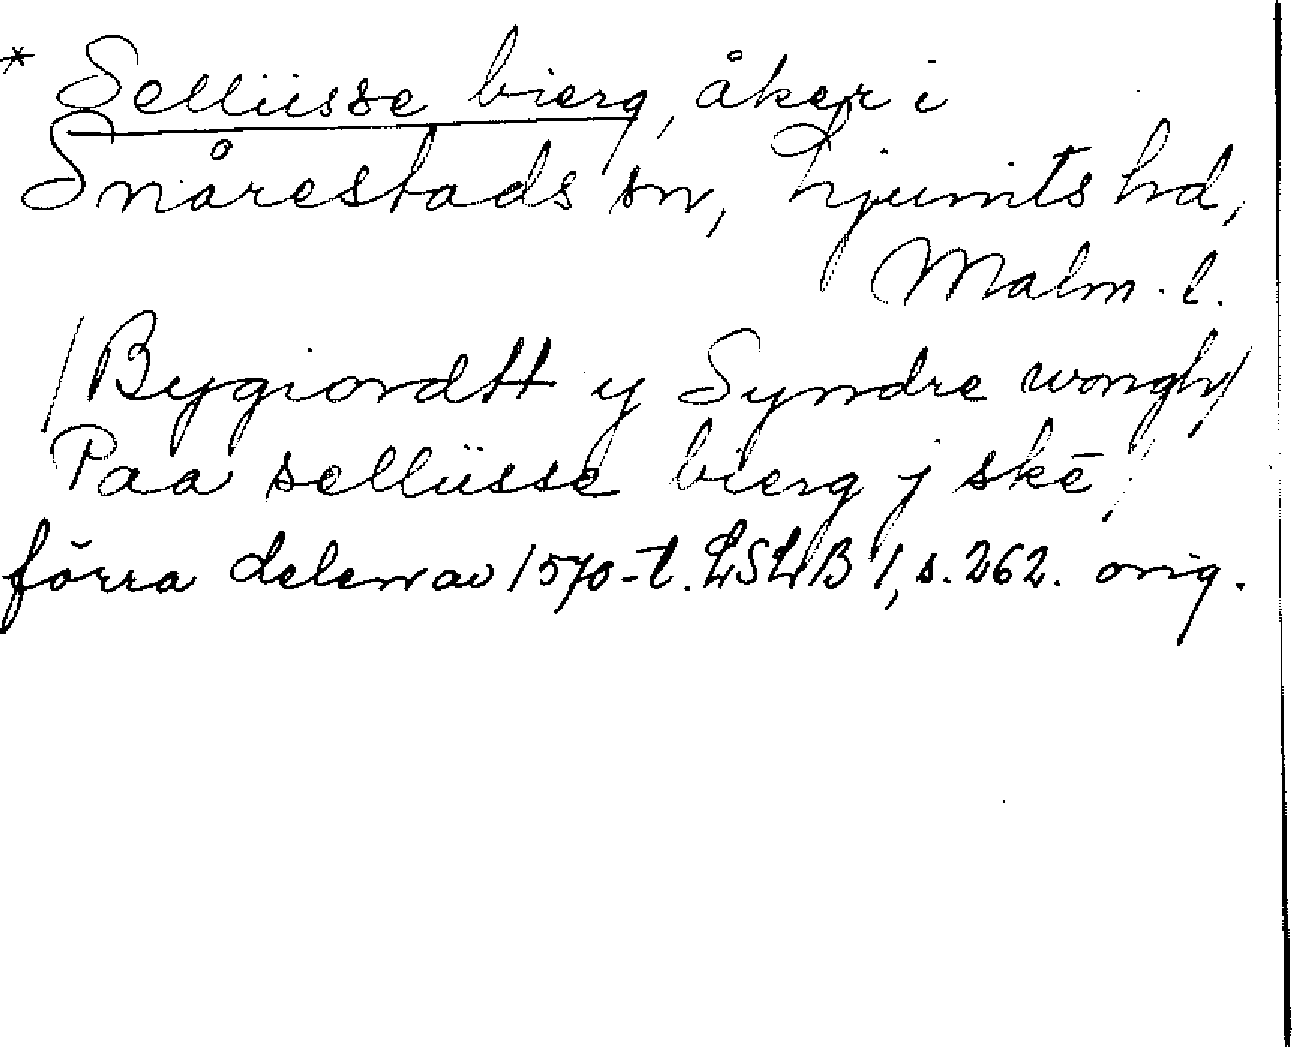 * Sellüsse bierg, åker i
Snårestads sn, Ljunits hd,
Malm. l.
/Bygiordtt y Syndre wongh/
Paa sellüsse bierg j skē/
förra delen av 1570-t. LSLB 1, s. 262. orig.